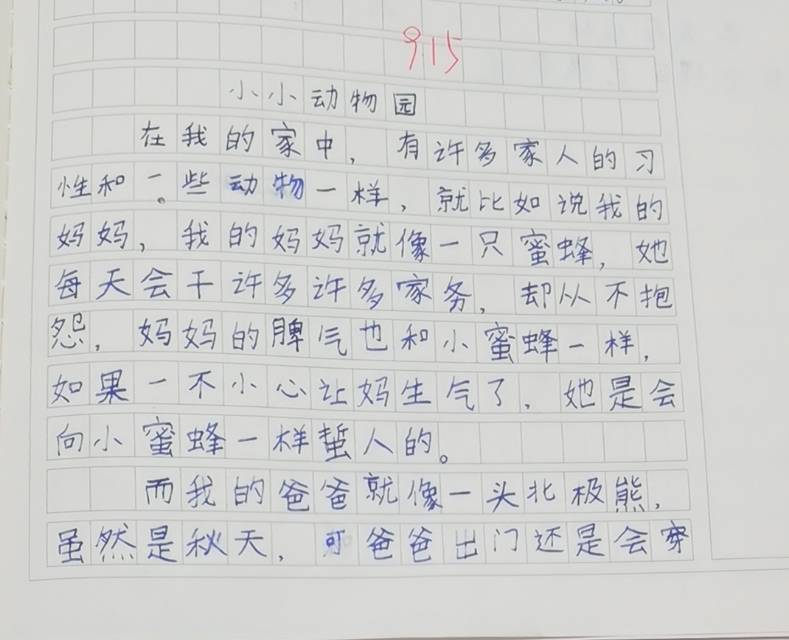 915
小小动物园
在我的家中，有许多家人的习
性和一些动物一样，就比如说我的
妈妈，我的妈妈就像一只蜜蜂，她
每天会干许多许多家务，却从不抱
怨，妈妈的脾气也和小蜜蜂一样，
如果一不小心让妈生气了，她是会
向小蜜蜂一样蜇人的。
而我的爸爸就像一头北极熊，
虽然是秋天，可爸爸出门还是会穿